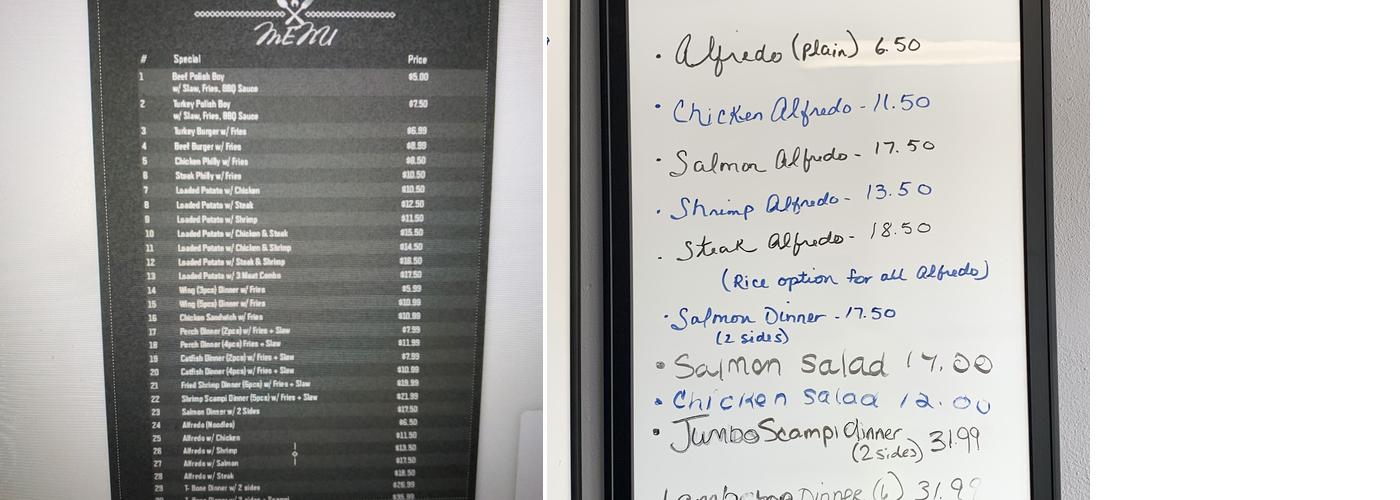 MENU
# Special Price
1 Beef Polish Boy $5.00
w/ Slaw, Fries, BBQ Sauce
2 Turkey Polish Boy $7.50
w/ Slaw, Fries, BBQ Sauce
3 Turkey Burger w/ Fries $6.99
4 Beef Burger w/ Fries $8.99
5 Chicken Philly w/ Fries $8.50
6 Steak Philly w/ Fries $10.50
7 Loaded Potato w/ Chicken $10.50
8 Loaded Potato w/ Steak $12.50
9 Loaded Potato w/ Shrimp $11.50
10 Loaded Potato w/ Chicken & Steak $15.50
11 Loaded Potato w/ Chicken & Shrimp $14.50
12 Loaded Potato w/ Steak & Shrimp $16.50
13 Loaded Potato w/ 3 Meat Combo $17.50
14 Wing (3pcs) Dinner w/ Fries $5.99
15 Wing (5pcs) Dinner w/ Fries $10.99
16 Chicken Sandwich w/ Fries $10.99
17 Perch Dinner (2pcs) w/ Fries + Slaw $7.99
18 Perch Dinner (4pcs) Fries + Slaw $11.99
19 Catfish Dinner (2pcs) w/ Fries + Slaw $7.99
20 Catfish Dinner (4pcs) w/ Fries + Slaw $10.99
21 Fried Shrimp Dinner (6pcs) w/ Fries + Slaw $19.99
22 Shrimp Scampi Dinner (5pcs) w/ Fries + Slaw $21.99
23 Salmon Dinner w/ 2 Sides $17.50
24 Alfredo (Noodles) $6.50
25 Alfredo w/ Chicken $11.50
26 Alfredo w/ Shrimp $13.50
27 Alfredo w/ Salmon $17.50
28 Alfredo w/ Steak $18.50
29 T- Bone Dinner w/ 2 sides $26.99
• Alfredo (plain) 6.50
• Chicken Alfredo - 11.50
• Salmon Alfredo - 17.50
• Shrimp Alfredo - 13.50
• Steak Alfredo - 18.50
(Rice option for all Alfredo)
• Salmon Dinner - 17.50
(2 sides)
• Salmon Salad 17.00
• Chicken Salad 12.00
• Jumbo Scampi dinner
(2 sides) 31.99
Dinner (6) 31.99